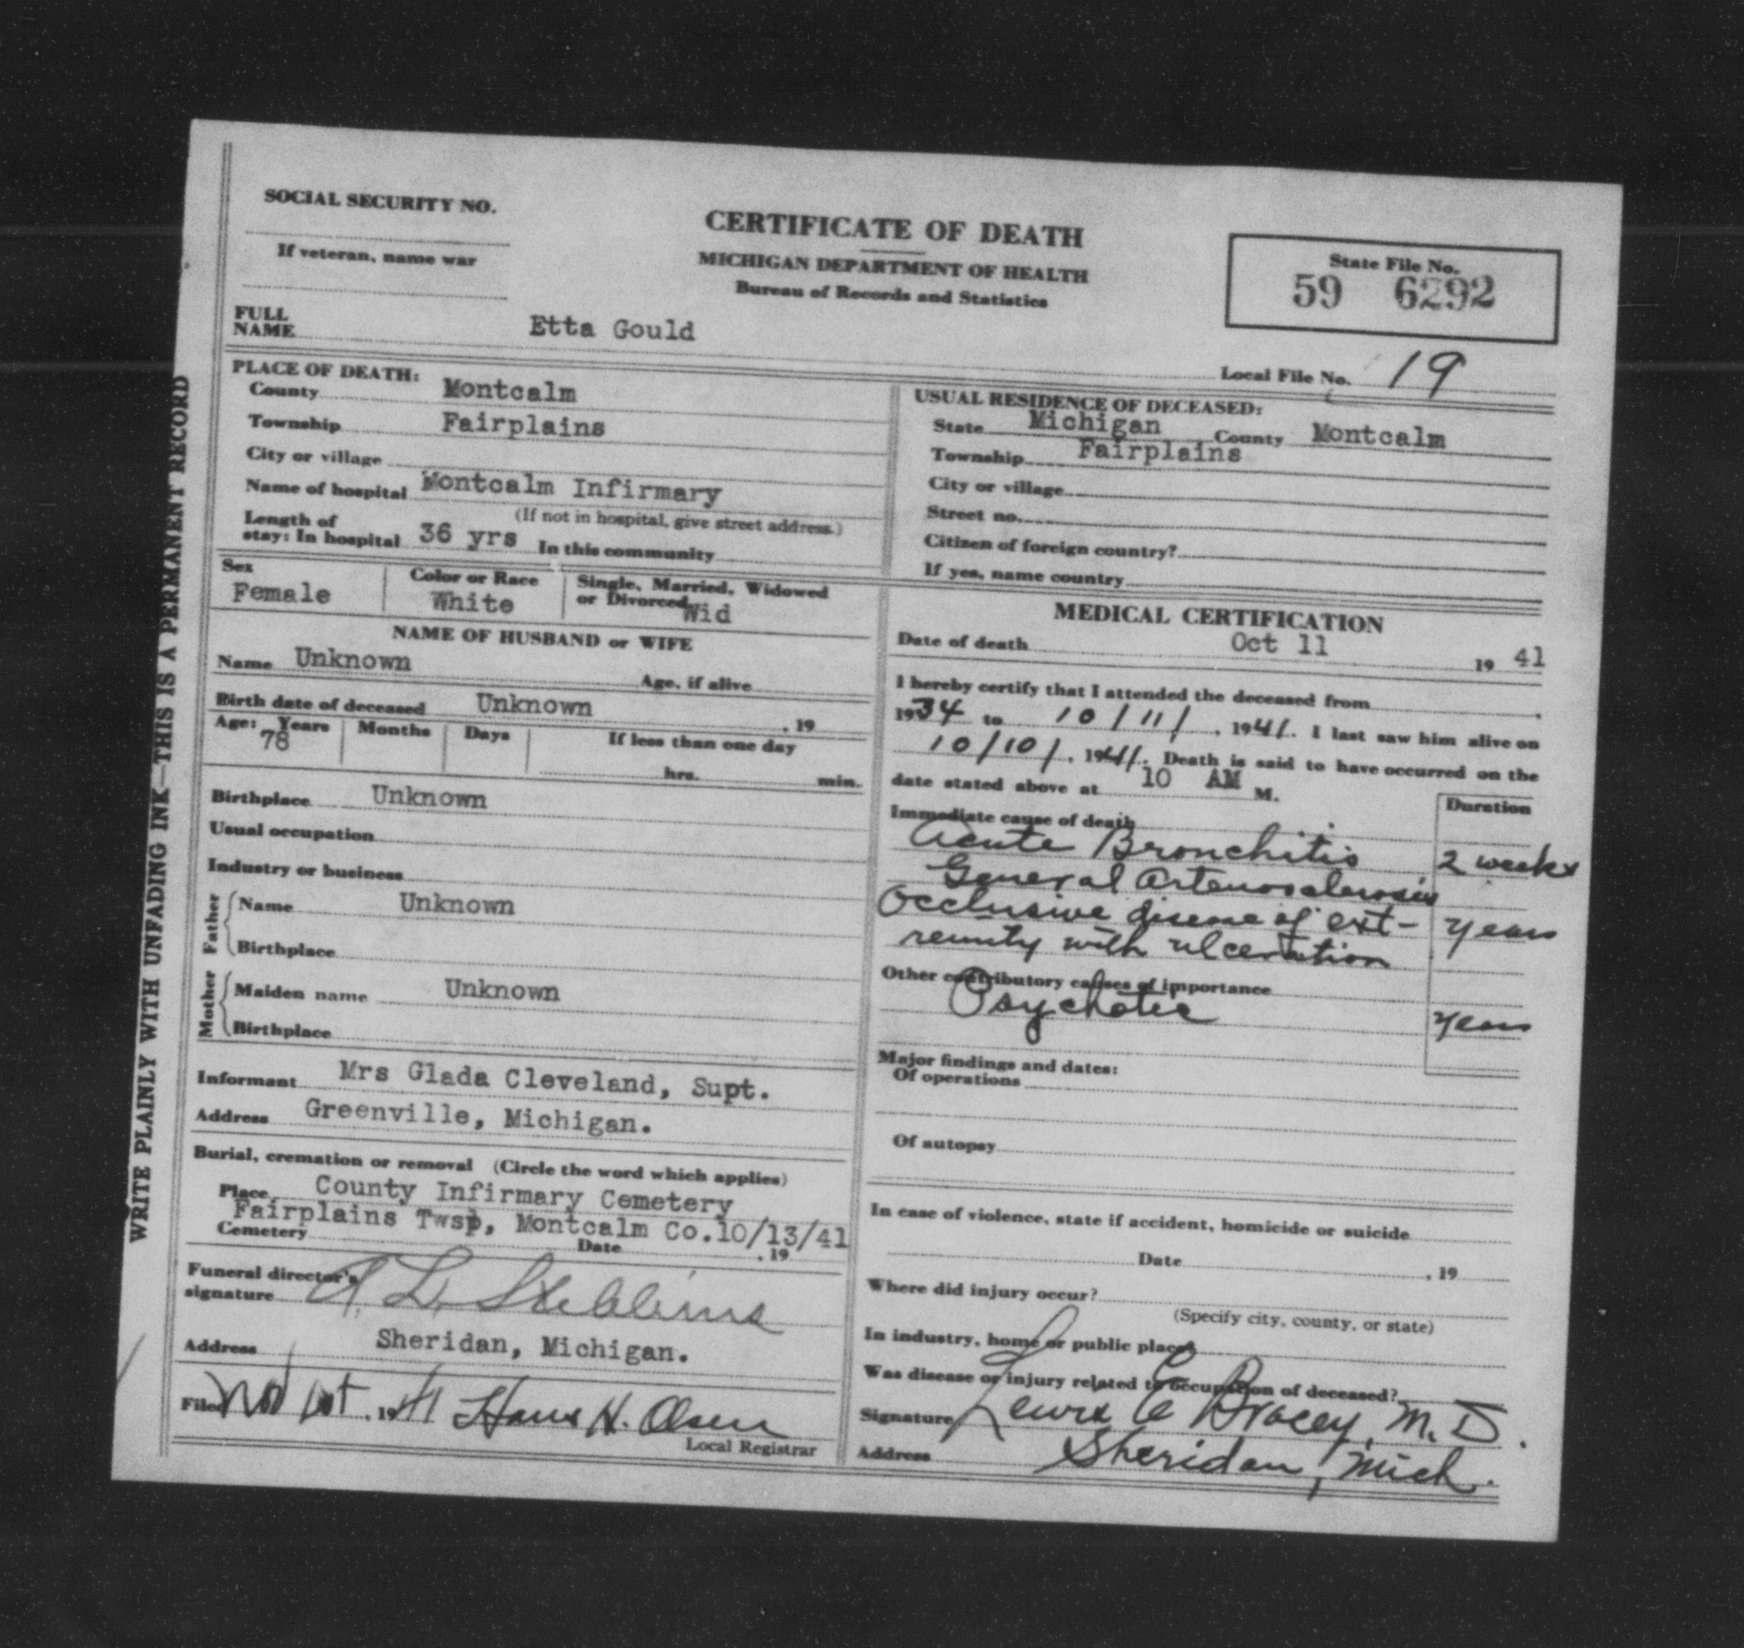 SOCIAL SECURITY NO.
If veteran, name war
CERTIFICATE OF DEATH
MICHIGAN DEPARTMENT OF HEALTH
Bureau of Records and Statistics
State File No.
59 6292
FULL NAME Etta Gould
Local File No. 19
WRITE PLAINLY WITH UNFADING INK—THIS IS A PERMANENT RECORD
PLACE OF DEATH:
County Montcalm
Township Fairplains
City or village
Name of hospital Montcalm Infirmary
(If not in hospital, give street address.)
Length of
stay: In hospital 36 yrs In this community
Sex Female
Color or Race White
Single, Married, Widowed
or Divorced Wid
NAME OF HUSBAND or WIFE
Name Unknown Age, if alive
Birth date of deceased Unknown , 19
Age: Years 78 Months Days If less than one day
hrs. min.
Birthplace Unknown
Usual occupation
Industry or business
Father Name Unknown
Birthplace
Mother Maiden name Unknown
Birthplace
Informant Mrs Glada Cleveland, Supt.
Address Greenville, Michigan.
Burial, cremation or removal (Circle the word which applies)
Place County Infirmary Cemetery
Fairplains Twsp, Montcalm Co. 10/13/41
Cemetery Date , 19
Funeral director's
signature L. Stebbins
Address Sheridan, Michigan.
Filed , 1941 Hans H. Olsen
Local Registrar
USUAL RESIDENCE OF DECEASED:
State Michigan County Montcalm
Township Fairplains
City or village
Street no.
Citizen of foreign country?
If yes, name country
MEDICAL CERTIFICATION
Date of death Oct 11 19 41
I hereby certify that I attended the deceased from ,
1934 to 10/11/, 1941. I last saw him alive on
10/10/, 1941. Death is said to have occurred on the
date stated above at 10 AM M.
Duration
Immediate cause of death
Acute Bronchitis 2 weeks
General Arteriosclerosis
Occlusive disease of ext- years
remity with ulceration
Other contributory causes of importance
Psychotic years
Major findings and dates:
Of operations
Of autopsy
In case of violence, state if accident, homicide or suicide
Date , 19
Where did injury occur?
(Specify city, county, or state)
In industry, home or public place?
Was disease or injury related to occupation of deceased?
Signature Lewis E Bracey, M.D.
Address Sheridan, Mich.